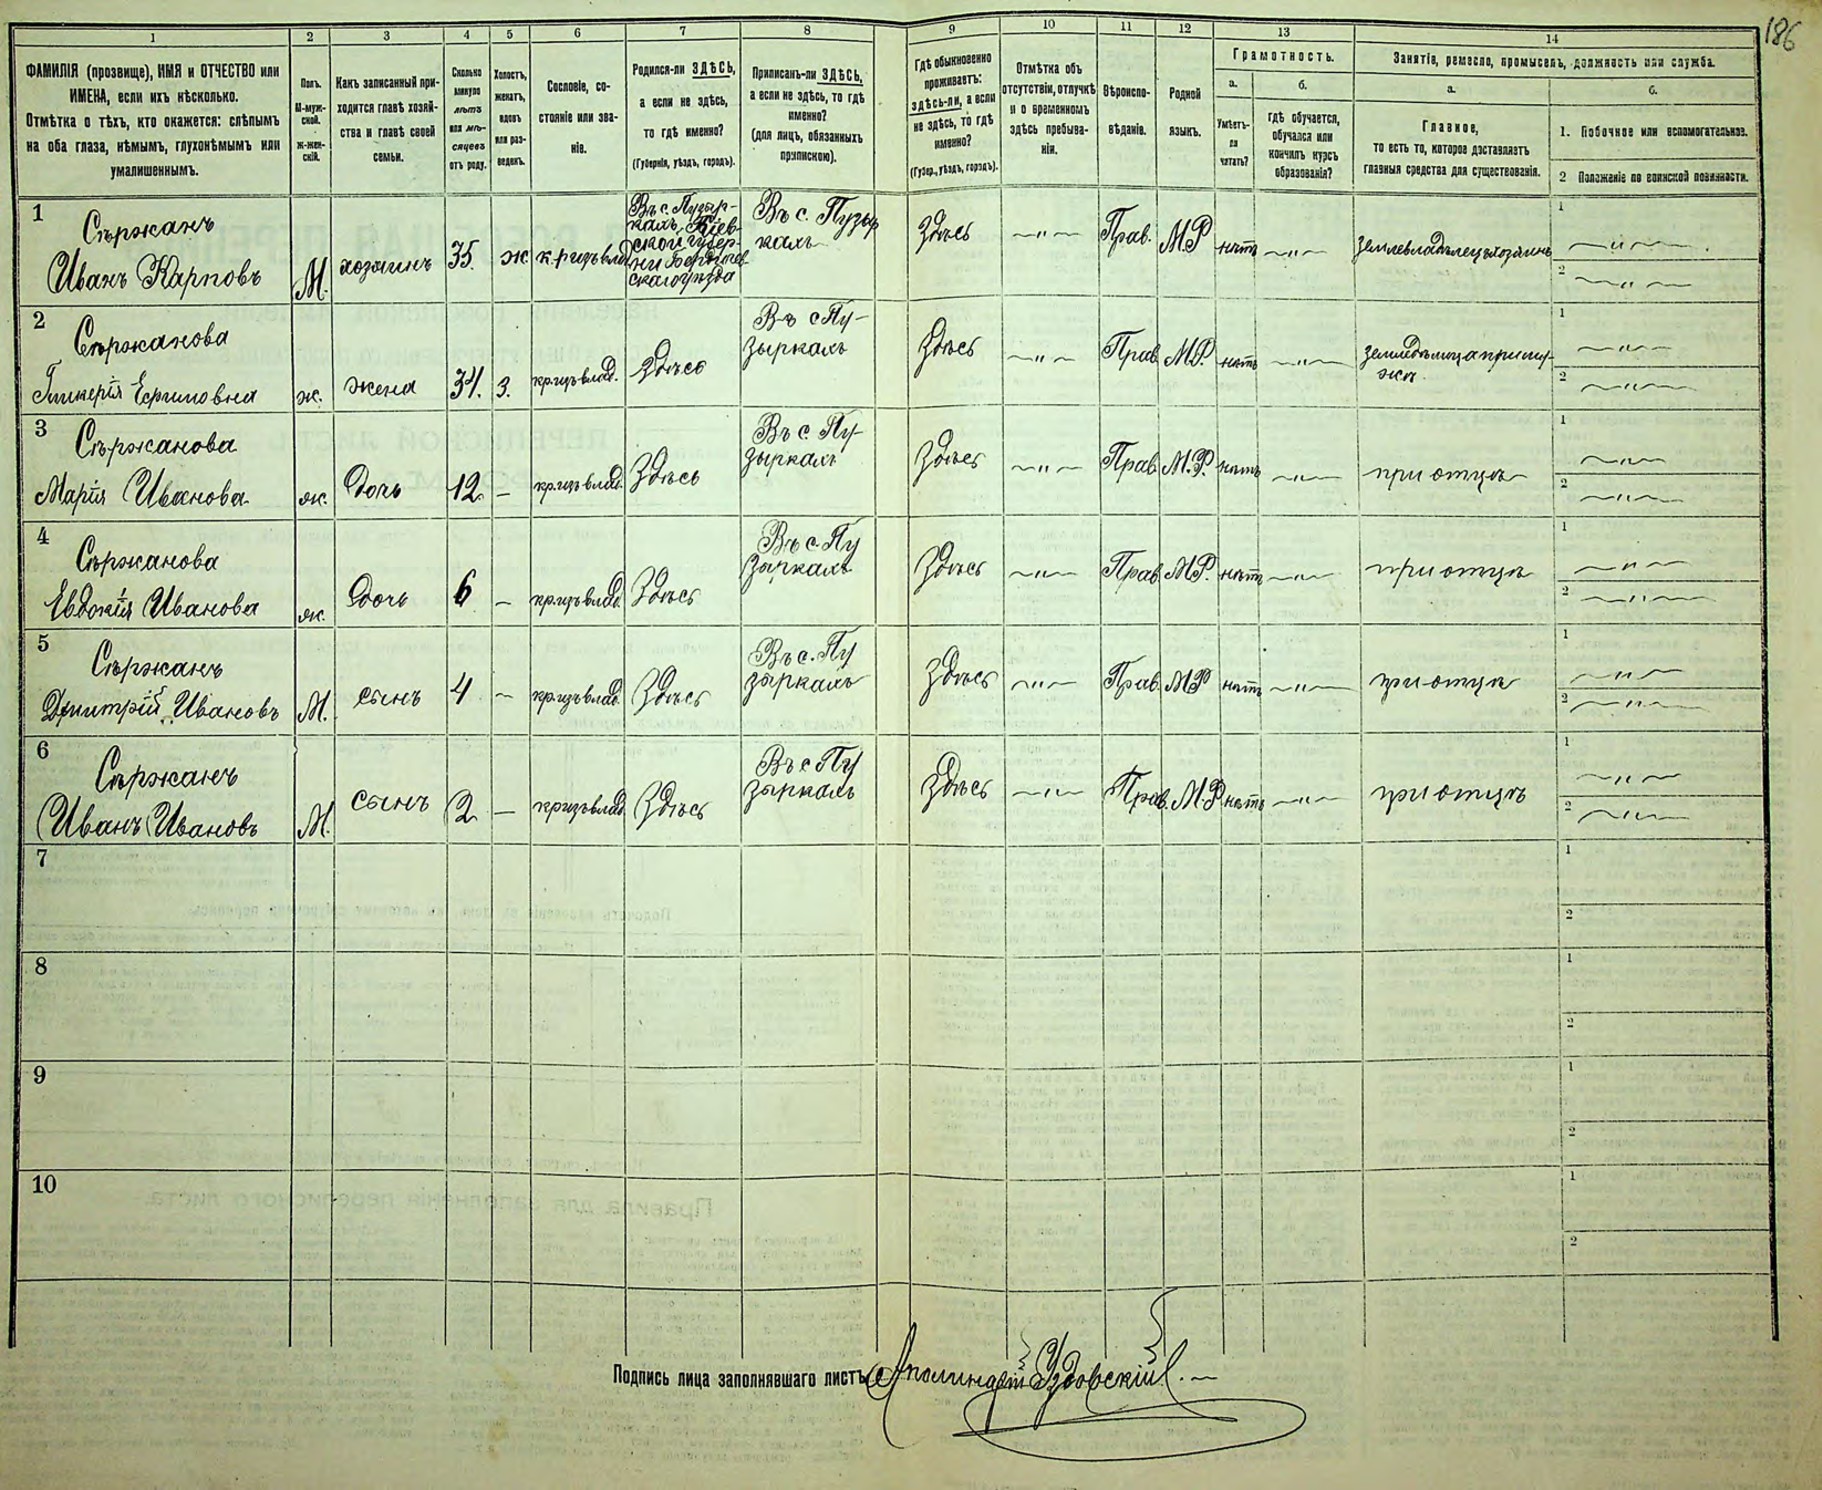 186
1
2
3
4
5
6
7
8
9
10
11
12
13
14
ФАМИЛІЯ (прозвище), ИМЯ и ОТЧЕСТВО или
ИМЕНА, если ихъ нѣсколько.
Отмѣтка о тѣхъ, кто окажется: слѣпымъ
на оба глаза, нѣмымъ, глухонѣмымъ или
умалишеннымъ.
Полъ.
М-муж-
ской.
Ж-жен-
скій.
Какъ записанный при-
ходится главѣ хозяй-
ства и главѣ своей
семьи.
Сколько
минуло
лѣтъ
или мѣ-
сяцевъ
отъ роду.
Холостъ,
женатъ,
вдовъ
или раз-
веденъ.
Сословіе, со-
стояніе или зва-
ніе.
Родился-ли ЗДѢСЬ,
а если не здѣсь,
то гдѣ именно?
(Губернія, уѣздъ, городъ).
Приписанъ-ли ЗДѢСЬ,
а если не здѣсь, то гдѣ
именно?
(для лицъ, обязанныхъ
припискою).
Гдѣ обыкновенно
проживаетъ:
здѣсь-ли, а если
не здѣсь, то гдѣ
именно?
(Губер., уѣздъ, городъ).
Отмѣтка объ
отсутствіи, отлучкѣ
и о временномъ
здѣсь пребыва-
ніи.
Вѣроиспо-
вѣданіе.
Родной
языкъ.
Грамотность.
а.
Умѣетъ-
ли
читать?
б.
гдѣ обучается,
обучался или
кончилъ курсъ
образованія?
Занятіе, ремесло, промыселъ, должность или служба.
а.
Главное,
то есть то, которое доставляетъ
главныя средства для существованія.
б.
1. Побочное или вспомогательное.
2 Положеніе по воинской повинности.
1
Сержанъ
Иванъ Карповъ
М.
хозяинъ
35.
ж
кр.изъ влад
Въ с. Пузыр-
кахъ, Кіев-
ской губер-
ніи Бердичев
скаго уѣзда
Въ с. Пузыр
кахъ
Здѣсь
—"—
Прав.
М.Р
нѣтъ
—"—
землевладѣлецъ хозяинъ
1
—"—
2
—"—
2
Сержанова
Гликерія Ефимовна
ж.
жена
34.
З.
кр.изъ влад.
Здѣсь
Въ с Пу-
зыркахъ
Здѣсь
—"—
Прав
М.Р.
нѣтъ
—"—
земледѣлица при му-
жѣ.
1
—"—
2
—"—
3
Сержанова
Марія Иванова
ж.
дочь
12.
—
кр.изъ влад.
Здѣсь
Въ с. Пу-
зыркахъ
Здѣсь
—"—
Прав
М.Р.
нѣтъ
—"—
при отцѣ
1
—"—
2
—"—
4
Сержанова
Евдокія Иванова
ж.
дочь
6
—
кр.изъ влад.
Здѣсь
Въ с. Пу
зыркахъ
Здѣсь
—"—
Прав
М.Р.
нѣтъ
—"—
при отцѣ
1
—"—
2
—"—
5
Сержанъ
Дмитрій Ивановъ
М.
сынъ
4
—
кр.изъ влад.
Здѣсь
Въ с. Пу
зыркахъ
Здѣсь
—"—
Прав.
М.Р
нѣтъ
—"—
при отцѣ
1
—"—
2
—"—
6
Сержанъ
Иванъ Ивановъ
М.
сынъ
2
—
кр.изъ влад
Здѣсь
Въ с Пу
зыркахъ
Здѣсь
—"—
Прав.
М.Р
нѣтъ
—"—
при отцѣ
1
—"—
2
—"—
7
1
2
8
1
2
9
1
2
10
1
2
Подпись лица заполнявшаго листъ